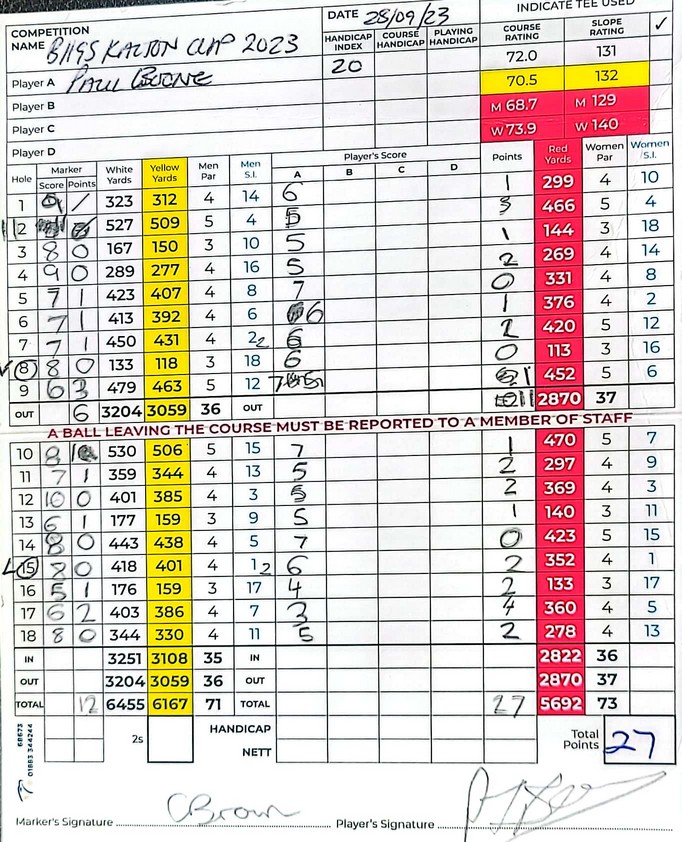 COMPETITION NAME BIGGS KALTON CUP 2023 DATE 28/09/23 INDICATE TEE USED ✓
HANDICAP INDEX COURSE HANDICAP PLAYING HANDICAP COURSE RATING SLOPE RATING
20 72.0 131
Player A PAUL 70.5 132
Player B M 68.7 M 129
Player C W 73.9 W 140
Player D
Hole Marker Score Points White Yards Yellow Yards Men Par Men S.I. Player's Score A B C D Points Red Yards Women Par Women S.I.
1 323 312 4 14 6 1 299 4 10
2 527 509 5 4 5 3 466 5 4
3 8 0 167 150 3 10 5 1 144 3 18
4 9 0 289 277 4 16 5 2 269 4 14
5 7 1 423 407 4 8 7 0 331 4 8
6 7 1 413 392 4 6 6 1 376 4 2
7 7 1 450 431 4 2 2 6 2 420 5 12
8 8 0 133 118 3 18 6 0 113 3 16
9 6 3 479 463 5 12 7 1 452 5 6
OUT 6 3204 3059 36 OUT 11 2870 37
A BALL LEAVING THE COURSE MUST BE REPORTED TO A MEMBER OF STAFF
10 8 1 530 506 5 15 7 1 470 5 7
11 7 1 359 344 4 13 5 2 297 4 9
12 10 0 401 385 4 3 5 2 369 4 3
13 6 1 177 159 3 9 5 1 140 3 11
14 8 0 443 438 4 5 7 0 423 5 15
15 8 0 418 401 4 1 2 6 2 352 4 1
16 5 1 176 159 3 17 4 2 133 3 17
17 6 2 403 386 4 7 3 4 360 4 5
18 8 0 344 330 4 11 5 2 278 4 13
IN 3251 3108 35 IN 2822 36
OUT 3204 3059 36 OUT 2870 37
TOTAL 12 6455 6167 71 TOTAL 27 5692 73
68673 01883 344244
2s HANDICAP Total Points 27
NETT
Marker's Signature C Brown Player's Signature